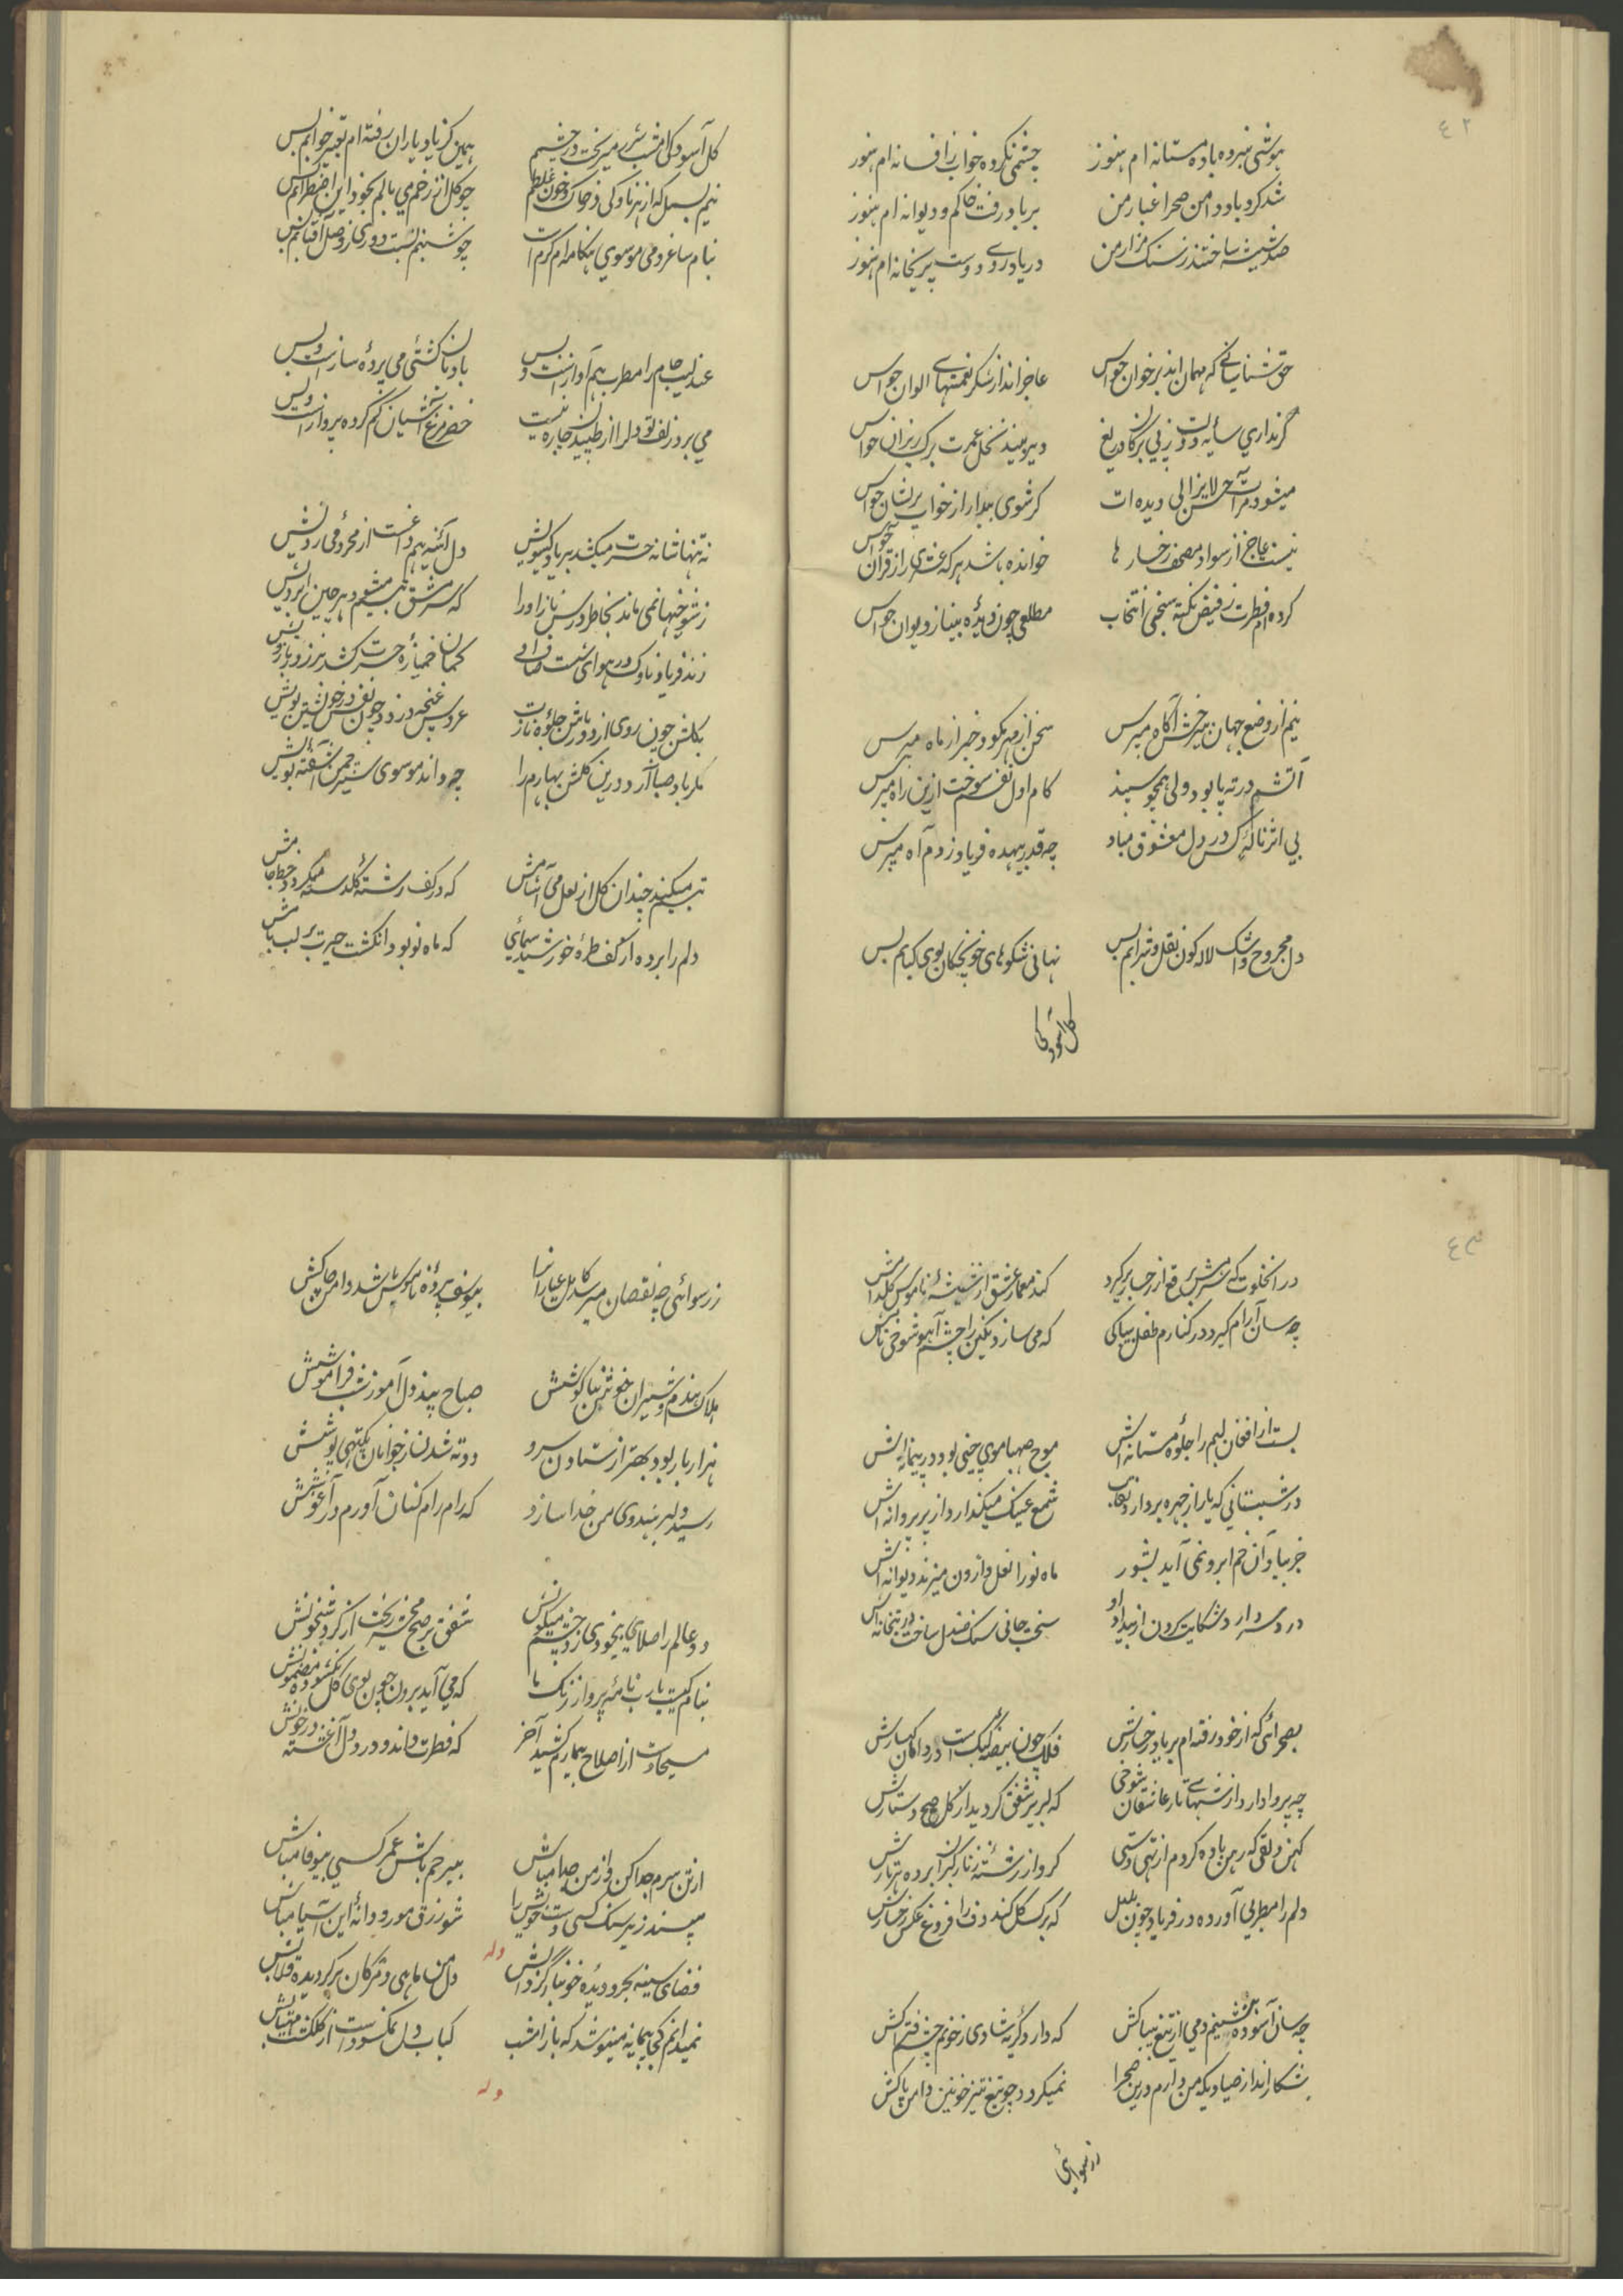 ٤٢
هوشی نبرده باده مستانه ام هنوز چشمی نکرده خواب ز افسانه ام هنوز
شد کرد باد دامن صحرا غبار من بر باد رفت خاکم و دیوانه ام هنوز
صد شیشه ساختند ز سنک مزار من در یاد روی دوست پریخانه ام هنوز
حق شناسانی که مهمان اند بر خوان حواس عاجز اند از شکر نعمتهای الوان حواس
گر نداری سایه دولت ز بی برکان دریغ دیر میبیند نخل عمرت برک ریزان حواس
میشود مرآت حسن لایزالی دیده ات کر شوی بیدار از خواب پریشان حواس
نیست عاجز از سواد مصحف رخسار ها خوانده باشد هر که عشری را ز قران حواس
کرده ام فطرت ز فیض نکته سنجی انتخاب مطلعی چون دیدۀ بینا ز دیوان حواس
نیم از وضع جهان بیخبرش آکاه مپرس سخن از مهر مکو و خبر از ماه مپرس
آتشم در ته پا بود ولی همچو سپند کام اول نفسم سوخت ازین راه مپرس
بی اثر نالۀ کس در دل معشوق مباد چه قدر بیهده فریاد زدم آه مپرس
دل مجروح و اشک لاله کون نقل و شرابم بس نهانی شکوهای خونچکان بوی کبابم بس
کل آسودکی
کل آسودکی امشب شرر میریخت در چشمم همین کز یاد یاران رفته ام تعبیر خوابم بس
نیم بسمل که از هر ناوکی در خاک و خون غلطم چو کل از زخم می بالم بخود این اضطرابم بس
بنام ساغر و می موسوی هنکامه ام کرم است چو شبنم نسبت دوری ز وصل آفتابم بس
عندلیب جام را مطرب هم آواز است و بس بادبان کشتی می پردۀ ساز است و بس
می برد زلف تو دل را از طپیدن چاره نیست خضر مرغ آشیان کم کرده پرواز است و بس
نه تنها شانه حسرت میکشد بر یاد کیسویش دل آئنه هم داغ است از محرومی رویش
ز شوخیها نمی ماند بخاطر درس ناز او را که سر مشق تبسم میشود هر چین ابرویش
زند فریاد ناوک در هوای شست صاف او کمان خمیازۀ حسرت کشد بر زور بازویش
بکلشن چون روی از دور باش جلوۀ نازت عروس غنچه دزدد چون نفس در خویشتن بویش
مکر باد صبا آرد درین کلشن بهارم را چه داند موسوی سیر چمن آشفته بویش
تبسم میکند چندان کل از لعل می آشامش که در کف رشتۀ کلدسته میکردد خط جامش
دلم را برده از کف طرۀ خورشید سیمائی که ماه نو بود انکشت حیرت بر لب بامش
٤٣
در انخلوت که شرمش برقع از رخسار برکیرد کند معمار عشق از شیشۀ ناموس کلدامش
چه سان آرام کیرد در کنارم طفل بیباکی که می سازد نکین را چشم آهو شوخی نامش
بست از افغان لبم را جلوۀ مستانه اش موج صهبا موی چینی بود در پیمانه اش
در شبستانی که یار از چهره بردارد نقاب شمع عینک میکذارد از پر پروانه اش
خبر بیاد آن خم ابرو نمی آید بشور ماه نو را نعل وارون میزند دیوانه اش
درد سر دارد شکایت کردن از بیداد او سخت جانی سنک صندل ساخت در بتخانه اش
بصحرائی که از خود رفته ام بر یاد رخسارش فلک چون بیضۀ کبک است در دامان کهسارش
چه پروا دارد از شبهای تار عاشقان شوخی که لبریز شفق کردید از کل صبح دستارش
کهن دلقی که رهن باده کردم از تهی دستی کرو از رشتۀ زنار کبران برده هر تارش
دلم را مطربی آورده در فریاد چون بلبل که برک کل کند دف را فروغ عکس رخسارش
چه سان آسوده بنشینم دمی از تیغ بیباکش که دارد کریۀ شادی ز خونم چشم فتراکش
شکار انداز صیادیکه من دارم درین صحرا نمیکردد چو تیغ تیز خونین دامن پاکش
ز رسوائی
ز رسوائی چه نقصان میرسد کامل عیاران را بیوسف پردۀ ناموس شد دامن چاکش
هلاک هندم و شیران خونریز بناکوشش صباح پیند دل آموز شب فراموشش
هزار بار بود بهتر از ستادن سرو دوته شدن ز جوانان پکتهی پوشش
رسید دلبر هندوی من خدا سازد که رام رام کنان آورم در آغوشش
دو عالم را صلای بیخودی زد چشم میکونش شفق بر صبح محشر ریخت از کرد شبخونش
بنام کیست یارب نامۀ پرواز رنک ما که می آید برون چون بوی کل نکشوده مضمونش
مسیحا دست از اصلاح بیماریم کشید آخر که فطرت داند و درد دل آغشته در خونش
از تن سرم جدا کن و از من جدا مباش بیرحم باش عمر کسی بیوفا مباش
مپسند زیر سنک کسی دست خویش را شو رزق مور و دانۀ این آسیا مباش
وله
فضای سینه بحر و دیده خونبار کردابش دل من ماهی و مژکان برکردیده قلابش
نمیدانم کجی پیمانه مینوشد که باز امشب کباب دل نمکسود است از کلکشت مهتابش
وله